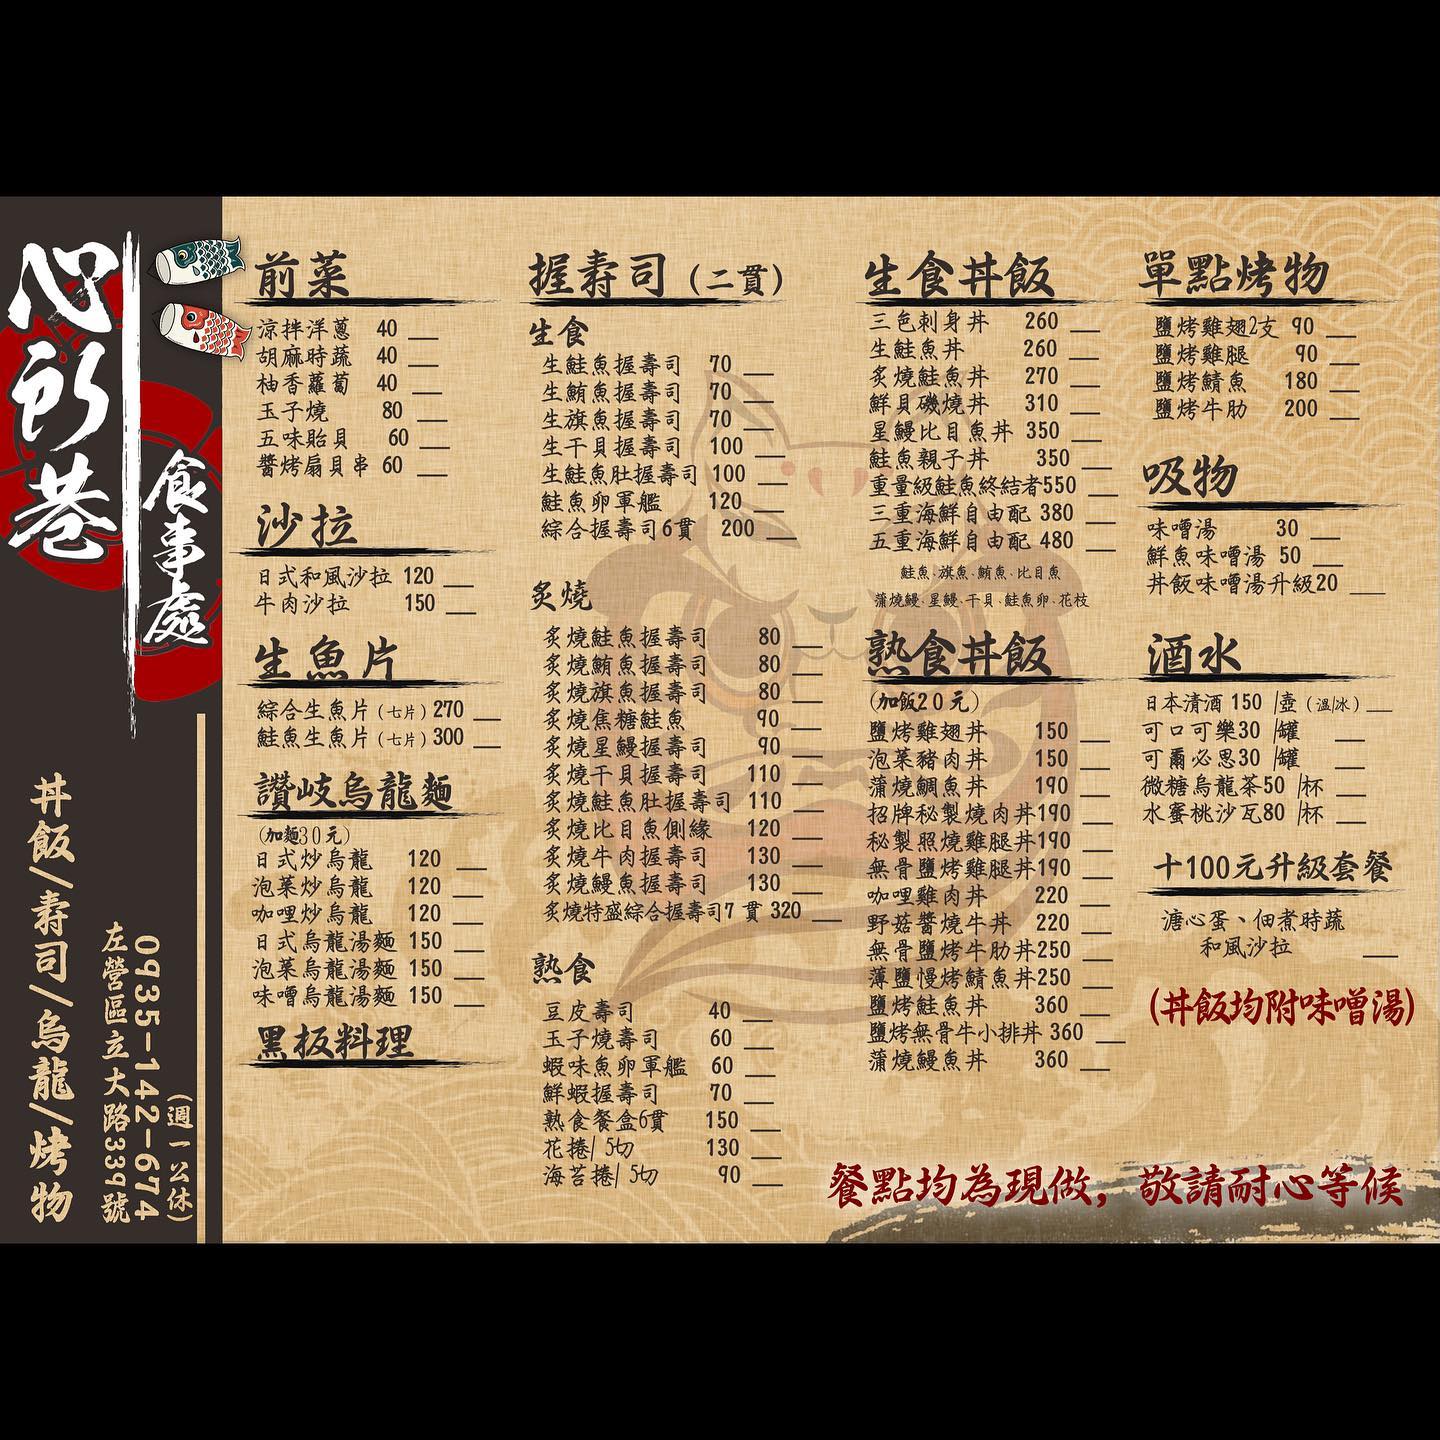 心訢巷
食事處
丼飯/壽司/烏龍/烤物
左營區立大路339號
0935-142-674
(週一公休)
前菜
涼拌洋蔥 40
胡麻時蔬 40
柚香蘿蔔 40
玉子燒 80
五味貽貝 60
醬烤扇貝串 60
沙拉
日式和風沙拉 120
牛肉沙拉 150
生魚片
綜合生魚片(七片)270
鮭魚生魚片(七片)300
讚岐烏龍麵
(加麵30元)
日式炒烏龍 120
泡菜炒烏龍 120
咖哩炒烏龍 120
日式烏龍湯麵 150
泡菜烏龍湯麵 150
味噌烏龍湯麵 150
黑板料理
握壽司(二貫)
生食
生鮭魚握壽司 70
生鮪魚握壽司 70
生旗魚握壽司 70
生干貝握壽司 100
生鮭魚肚握壽司 100
鮭魚卵軍艦 120
綜合握壽司6貫 200
炙燒
炙燒鮭魚握壽司 80
炙燒鮪魚握壽司 80
炙燒旗魚握壽司 80
炙燒焦糖鮭魚 90
炙燒星鰻握壽司 90
炙燒干貝握壽司 110
炙燒鮭魚肚握壽司 110
炙燒比目魚側緣 120
炙燒牛肉握壽司 130
炙燒鰻魚握壽司 130
炙燒特盛綜合握壽司7貫 320
熟食
豆皮壽司 40
玉子燒壽司 60
蝦味魚卵軍艦 60
鮮蝦握壽司 70
熟食餐盒6貫 150
花捲/5切 130
海苔捲/5切 90
生食丼飯
三色刺身丼 260
生鮭魚丼 260
炙燒鮭魚丼 270
鮮貝磯燒丼 310
星鰻比目魚丼 350
鮭魚親子丼 350
重量級鮭魚終結者550
三重海鮮自由配 380
五重海鮮自由配 480
鮭魚、旗魚、鮪魚、比目魚
蒲燒鰻、星鰻、干貝、鮭魚卵、花枝
熟食丼飯
(加飯20元)
鹽烤雞翅丼 150
泡菜豬肉丼 150
蒲燒鯛魚丼 190
招牌秘製燒肉丼190
秘製照燒雞腿丼190
無骨鹽烤雞腿丼190
咖哩雞肉丼 220
野菇醬燒牛丼 220
無骨鹽烤牛肋丼250
薄鹽慢烤鯖魚丼250
鹽烤鮭魚丼 360
鹽烤無骨牛小排丼 360
蒲燒鰻魚丼 360
單點烤物
鹽烤雞翅2支 90
鹽烤雞腿 90
鹽烤鯖魚 180
鹽烤牛肋 200
吸物
味噌湯 30
鮮魚味噌湯 50
丼飯味噌湯升級20
酒水
日本清酒 150 /壺(溫/冰)
可口可樂30 /罐
可爾必思30 /罐
微糖烏龍茶50 /杯
水蜜桃沙瓦80 /杯
十100元升級套餐
溏心蛋、佃煮時蔬
和風沙拉
(丼飯均附味噌湯)
餐點均為現做，敬請耐心等候